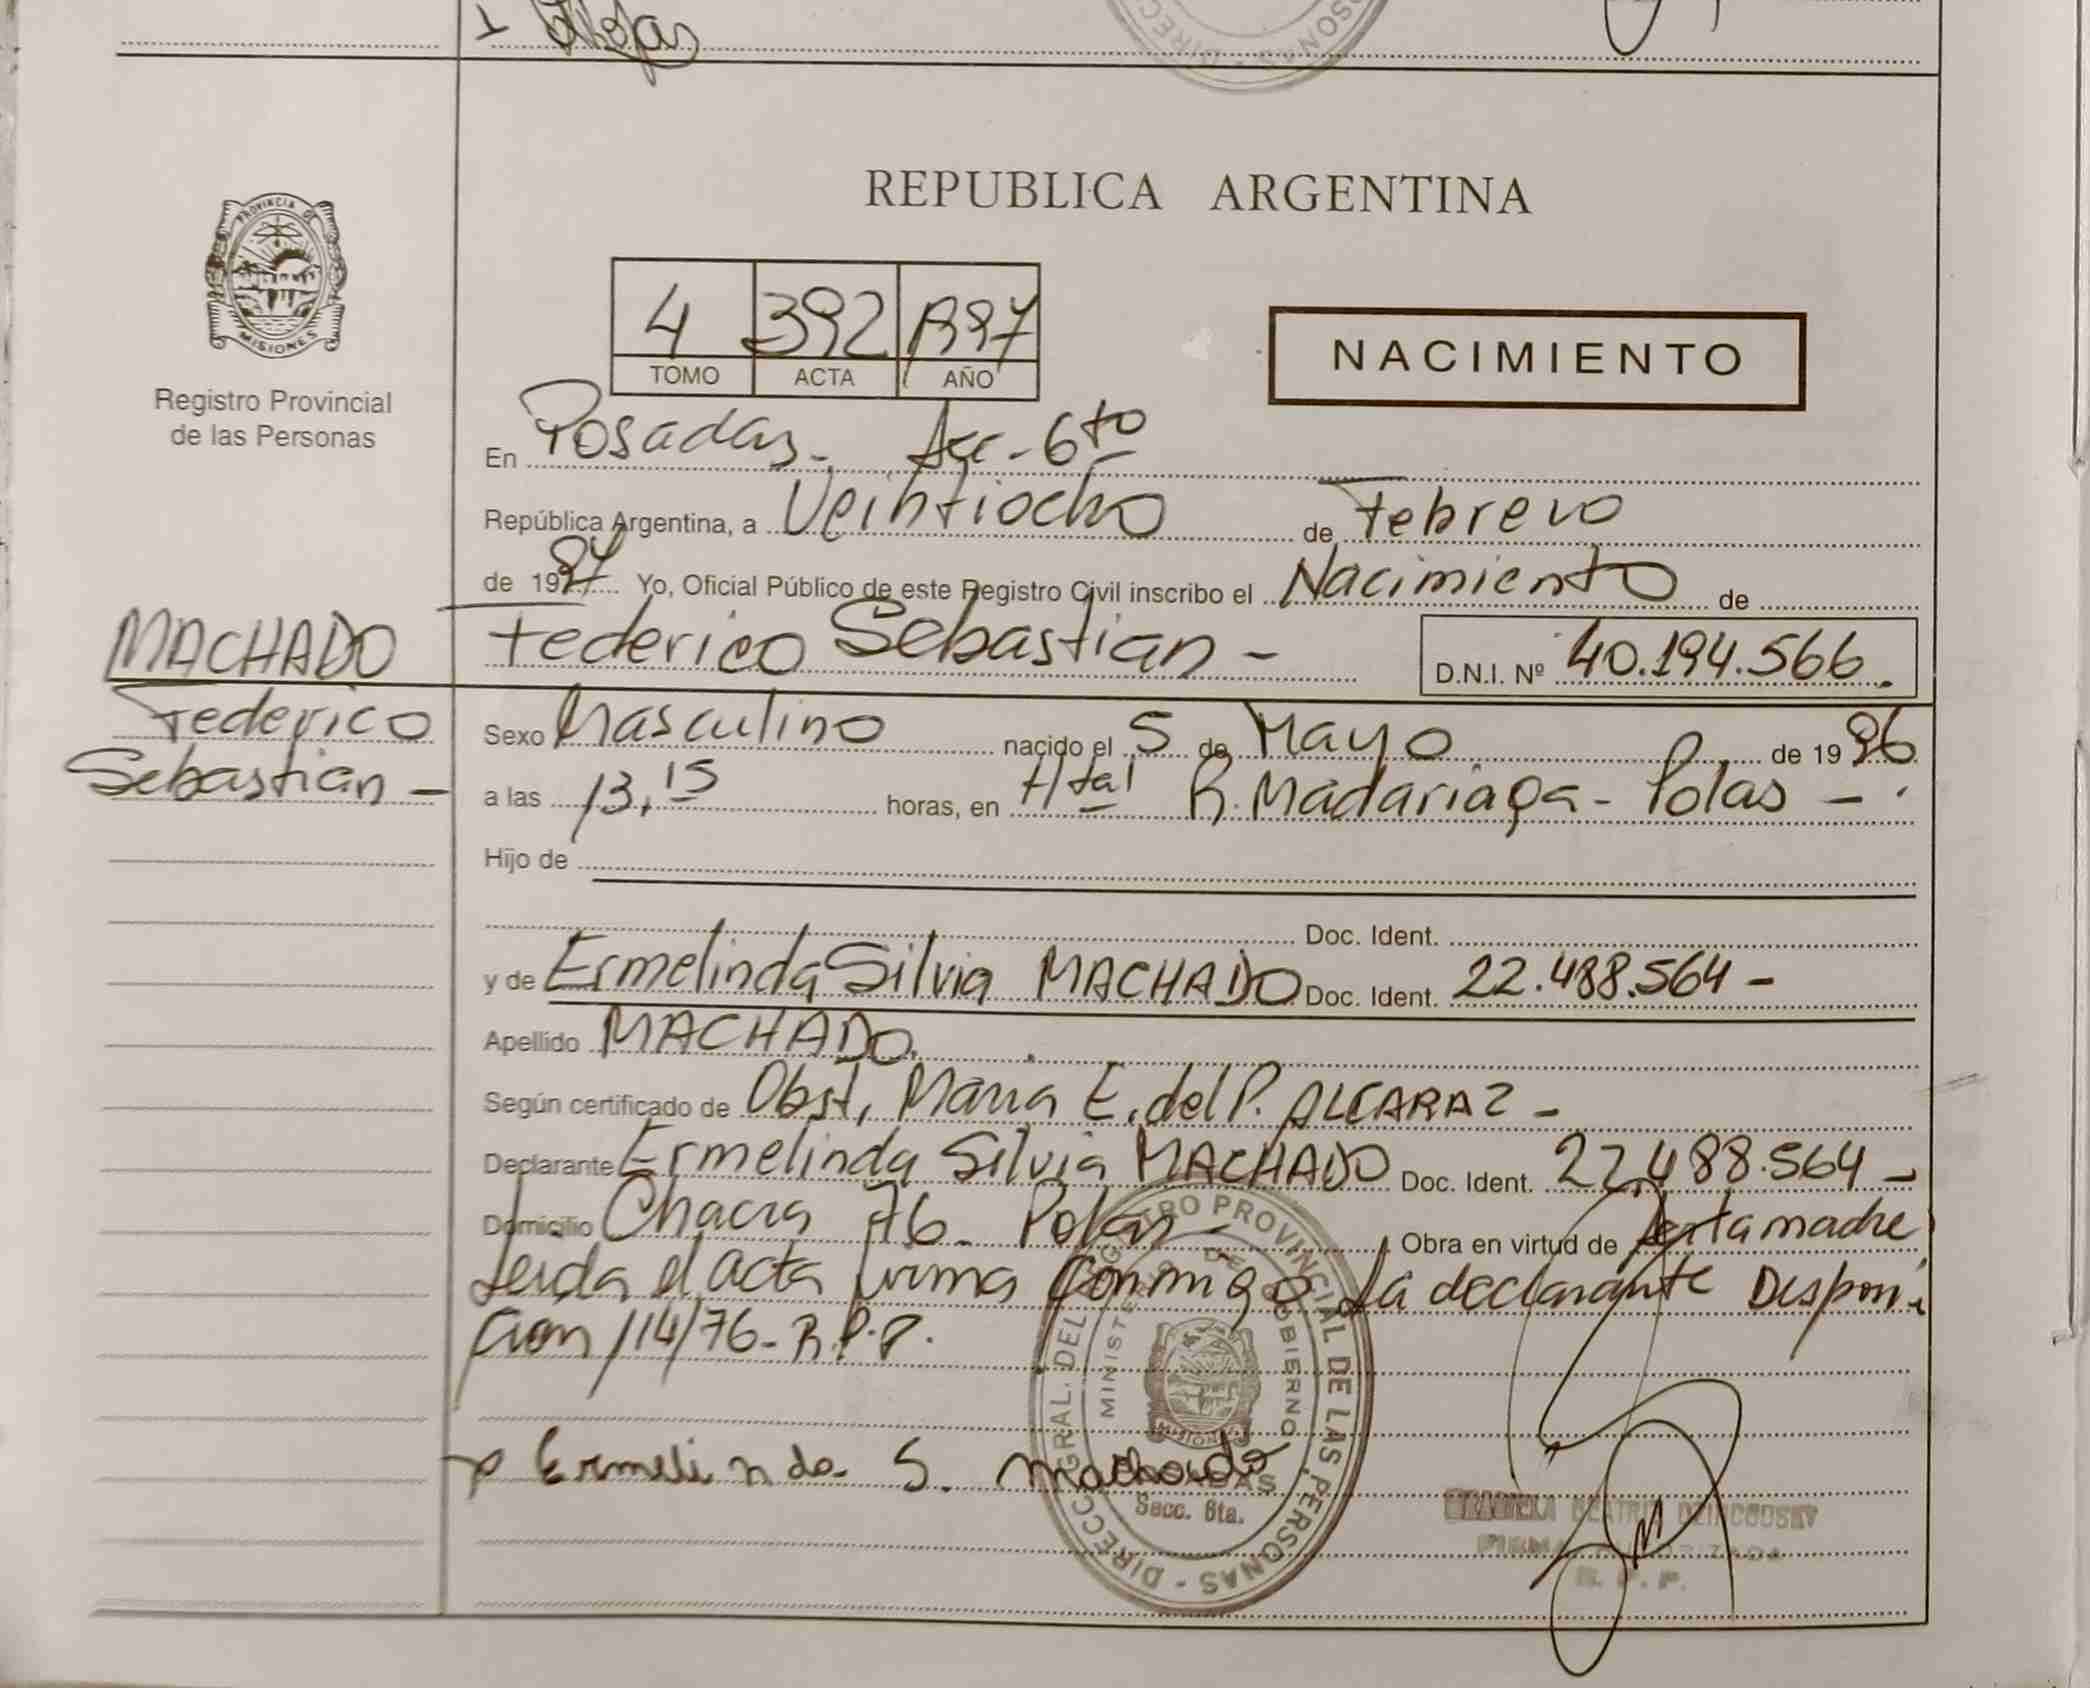 PROVINCIA DE
MISIONES
Registro Provincial
de las Personas
REPUBLICA ARGENTINA
4 392 1997
TOMO ACTA AÑO
NACIMIENTO
En Posadas - Secc - 6to
República Argentina, a Veintiocho de Febrero
de 1997 Yo, Oficial Público de este Registro Civil inscribo el Nacimiento de
MACHADO
Federico Sebastian - D.N.I. Nº 40.194.566.
Federico
Sebastian -
Sexo Masculino nacido el 5 de Mayo de 1996
a las 13,15 horas, en Htal R. Madariaga - Pdas -
Hijo de
Doc. Ident.
y de Ermelinda Silvia MACHADO Doc. Ident. 22.488.564 -
Apellido MACHADO.
Según certificado de Obst, Maria E. del P. ALCARAZ -
Declarante Ermelinda Silvia MACHADO Doc. Ident. 22.488.564 -
Domicilio Chacra 76 - Pdas - Obra en virtud de ser la madre
Leida el acta firma conmigo la declarante Disposi
cion 114/76 - R.P.P.
Ermelinda S. Machado
DIRECC. GRAL. DEL REGISTRO PROVINCIAL DE LAS PERSONAS -
MINISTERIO DE GOBIERNO
MISIONES
POSADAS
Secc. 6ta.
BEATRIZ
FIRMA AUTORIZADA
R. P. P.